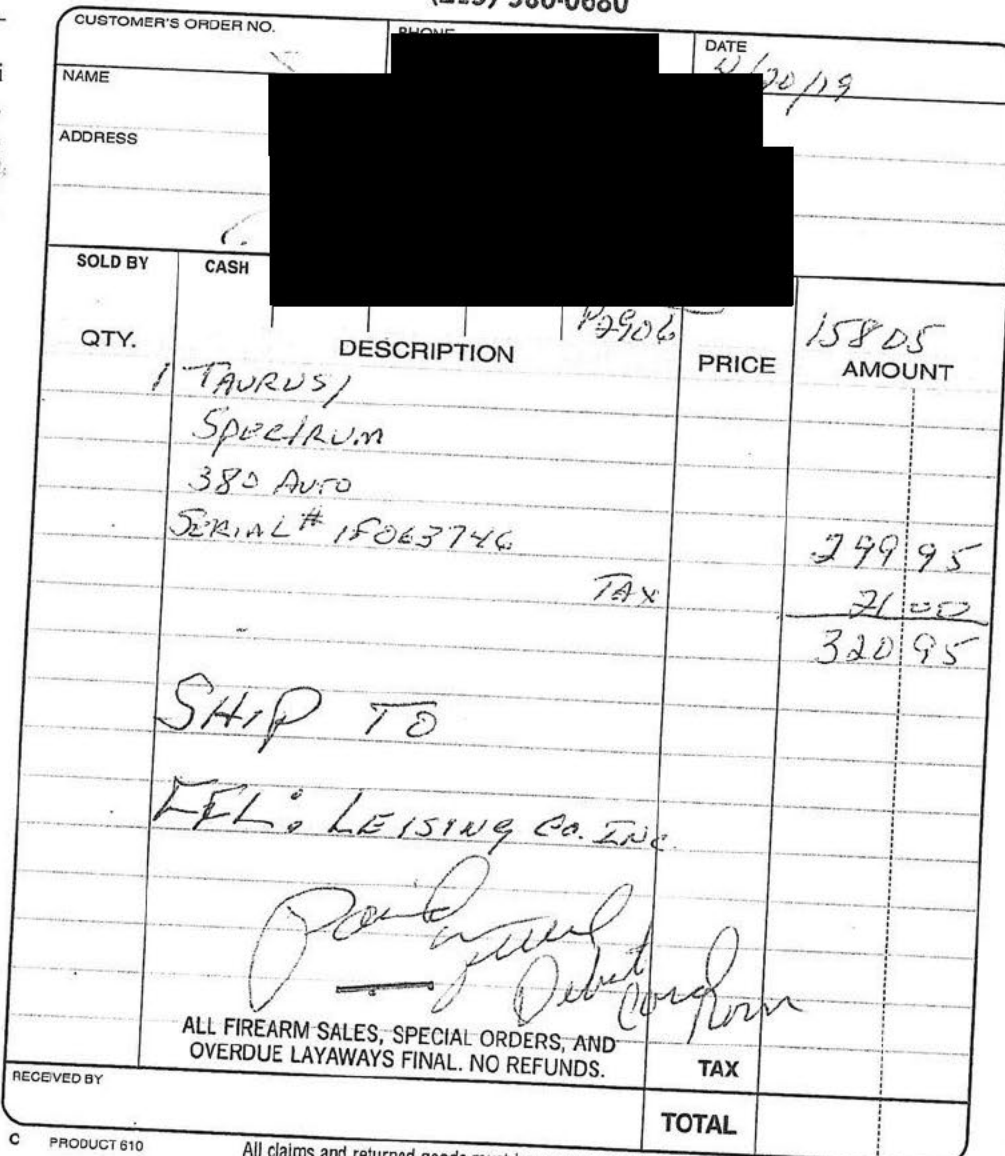 CUSTOMER'S ORDER NO.
PHONE
DATE
/20/19
NAME
ADDRESS
SOLD BY
CASH
P2906
15805
QTY.
DESCRIPTION
PRICE
AMOUNT
1 TAURUS/
Spectrum
380 AUTO
299 95
SERIAL# 1F063746
TAX
21 00
320 95
SHIP TO
FFL: LEISING CO. INC.
Paid
Debit
ALL FIREARM SALES, SPECIAL ORDERS, AND
OVERDUE LAYAWAYS FINAL. NO REFUNDS.
TAX
RECEIVED BY
TOTAL
C PRODUCT 610
All claims and returned goods must